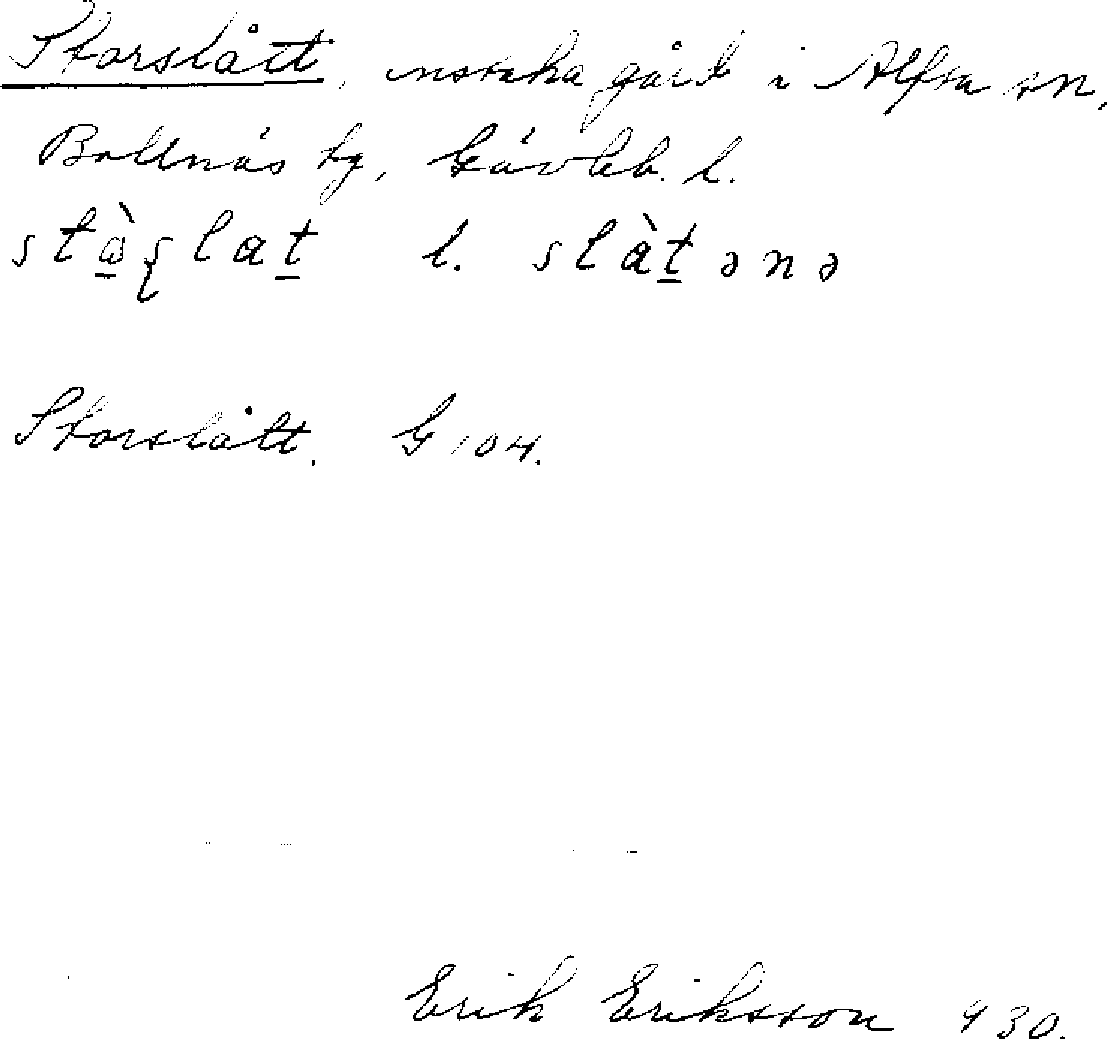 Storslått, enstaka gård i Alfta sn,
Bollnäs tg, Gävleb. l.
l. slàt̲ənə
Storslått. G 104.
Erik Eriksson 930.